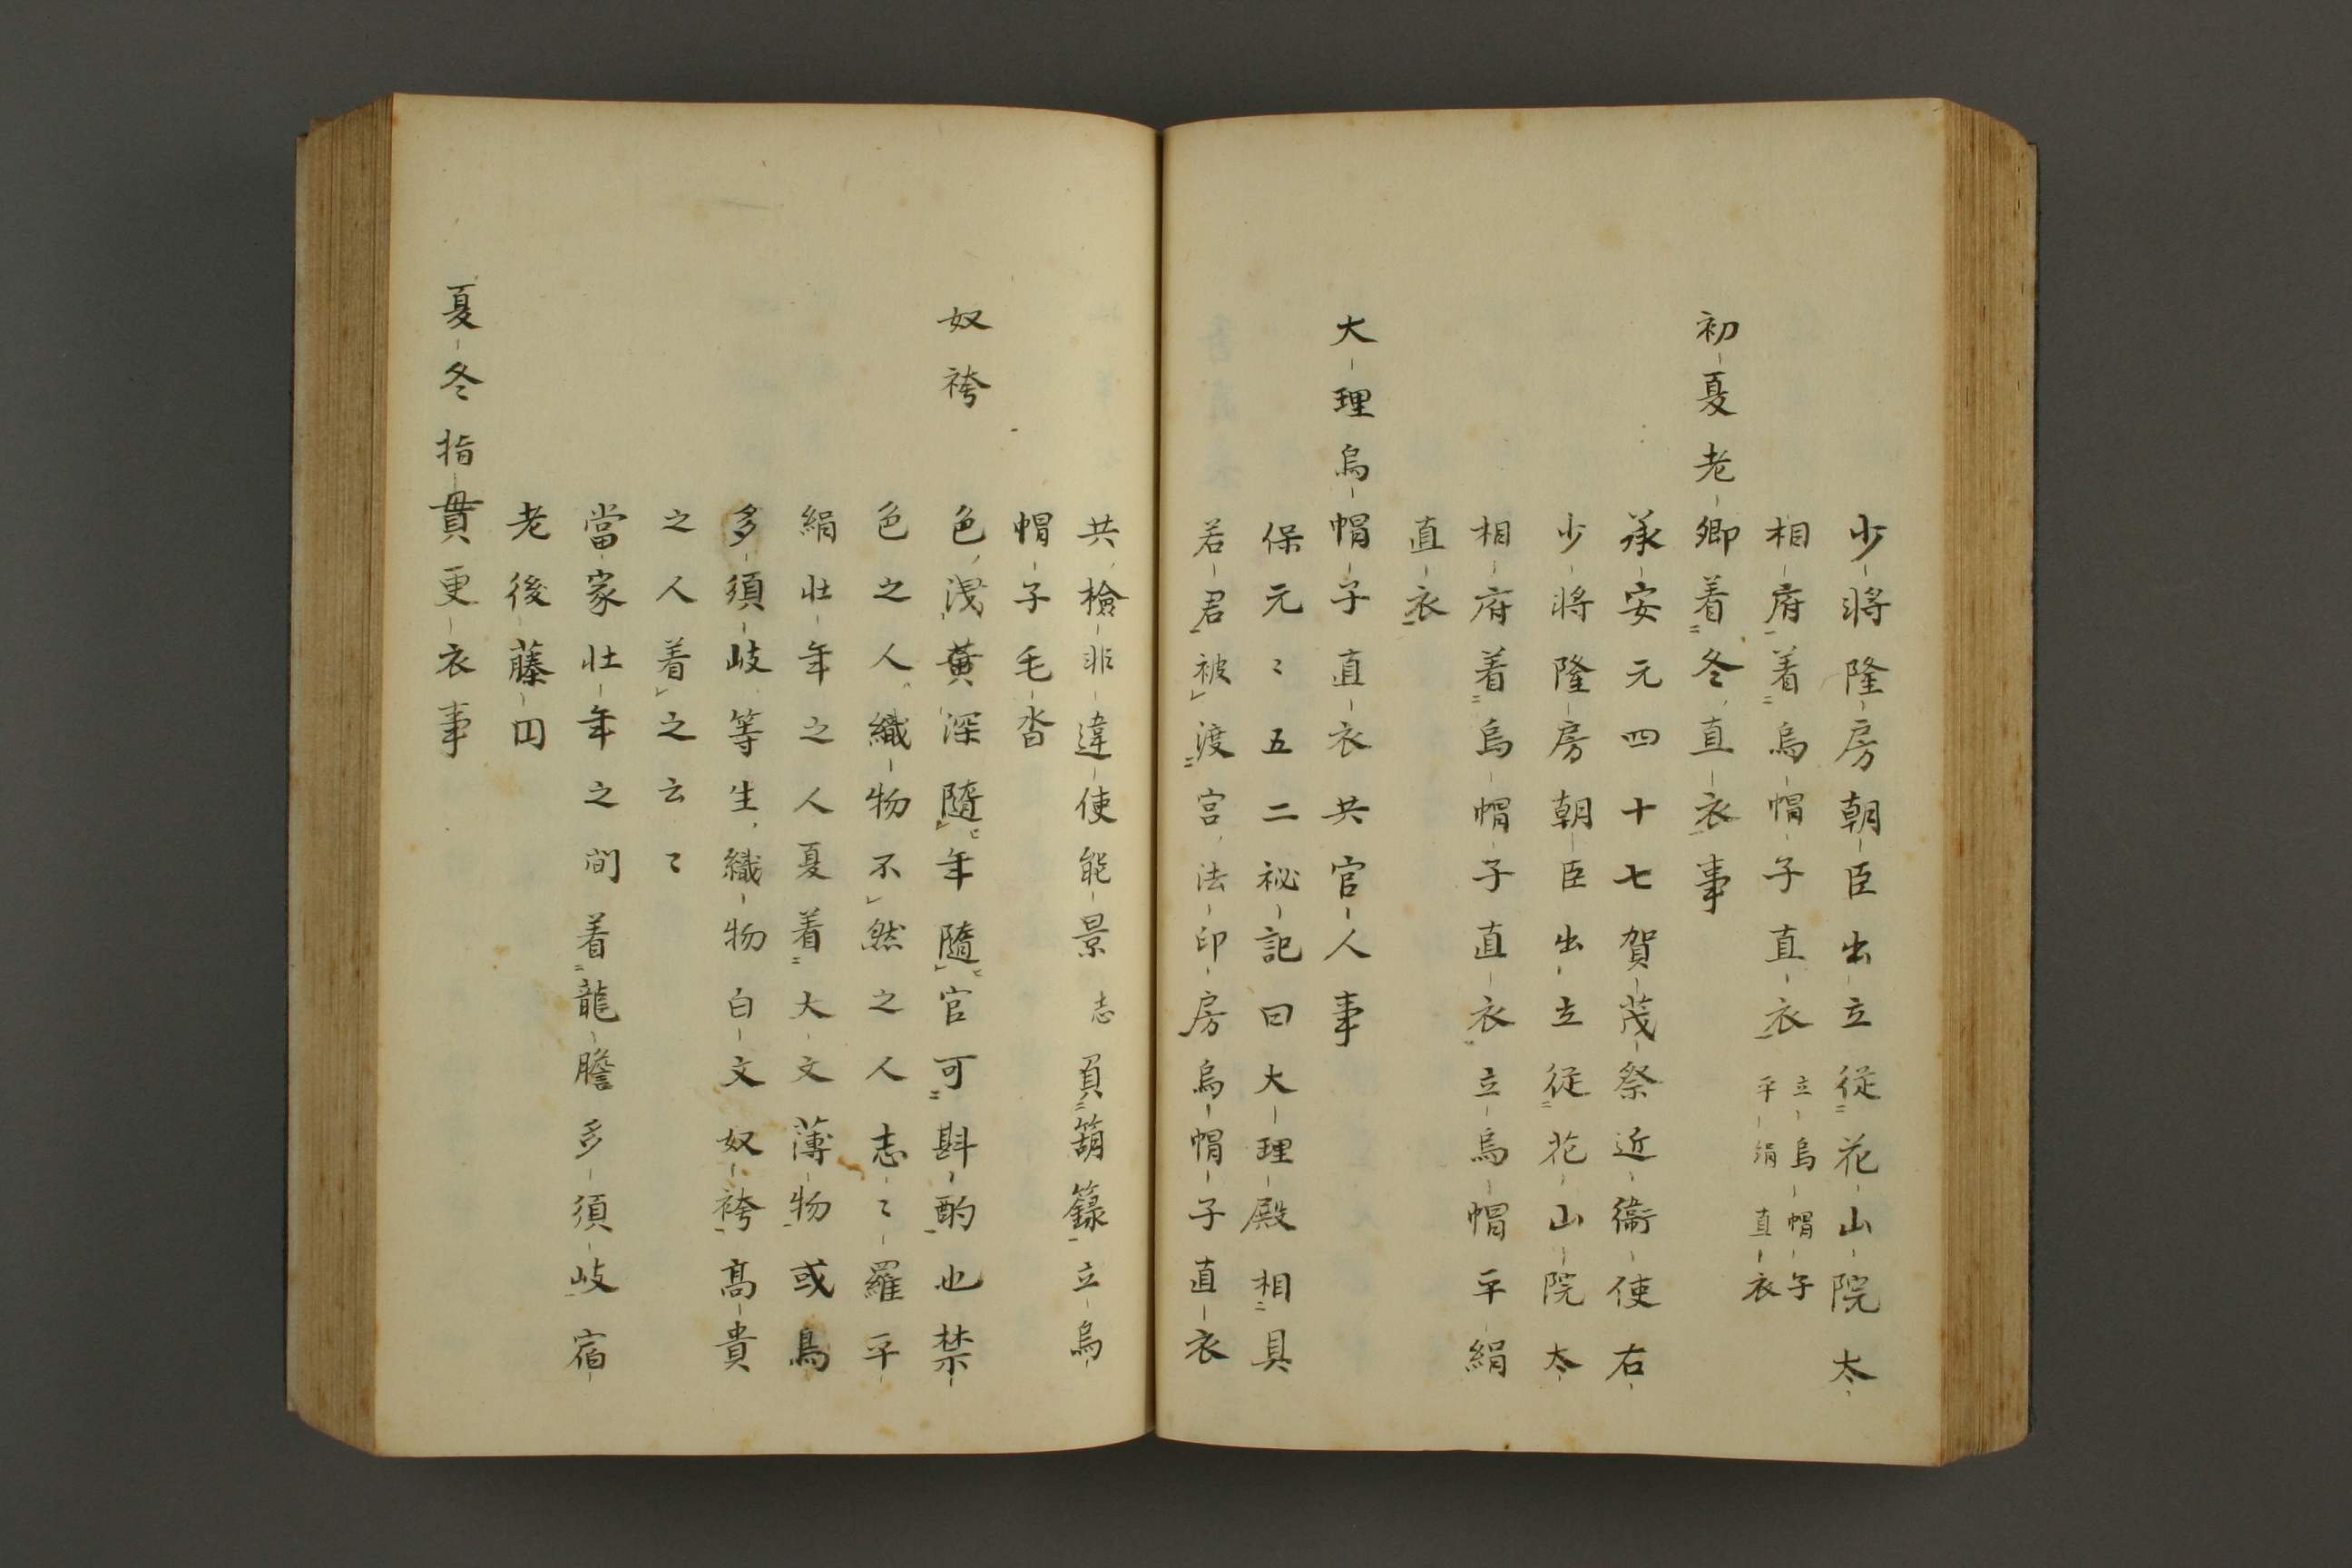 少将隆房朝臣出立従花山院太
相府着烏帽子直衣立烏帽子平絹直衣
初夏老卿着冬直衣事
承安元四十七賀茂祭近衛使右
少将隆房朝臣出立従花山院太
相府着烏帽子直衣立烏帽平絹
直衣
大理烏帽子直衣共官人事
保元〻五二秘記曰大理殿相具
若君被渡宮法印房烏帽子直衣
共検非違使能景志負箶籙立烏
帽子毛沓
奴袴
色浅黄深随年随官可斟酌也禁
色之人織物不然之人志〻羅平
絹壮年之人夏着大文薄物或鳥
多須岐等生織物白文奴袴高貴
之人着之云〻
當家壮年之間着龍膽多須岐宿
老後藤円
夏冬指貫更衣事